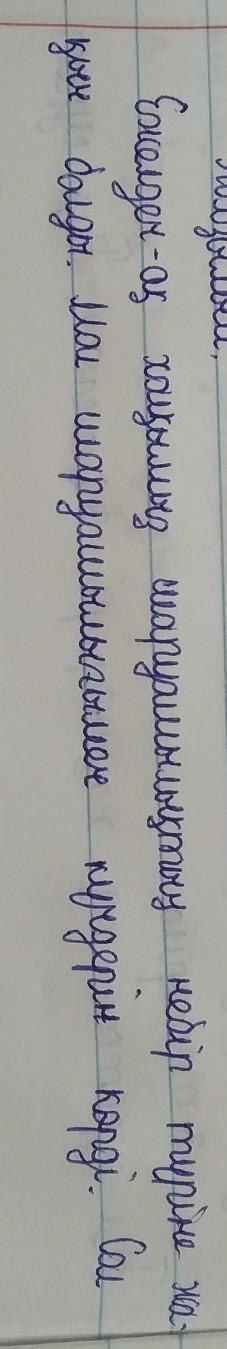 Ежелден-ақ халқымыз шаруашылықтың небір түріне жа-
қын болды. Мал шаруашылығымен күндерін көрді. Сал